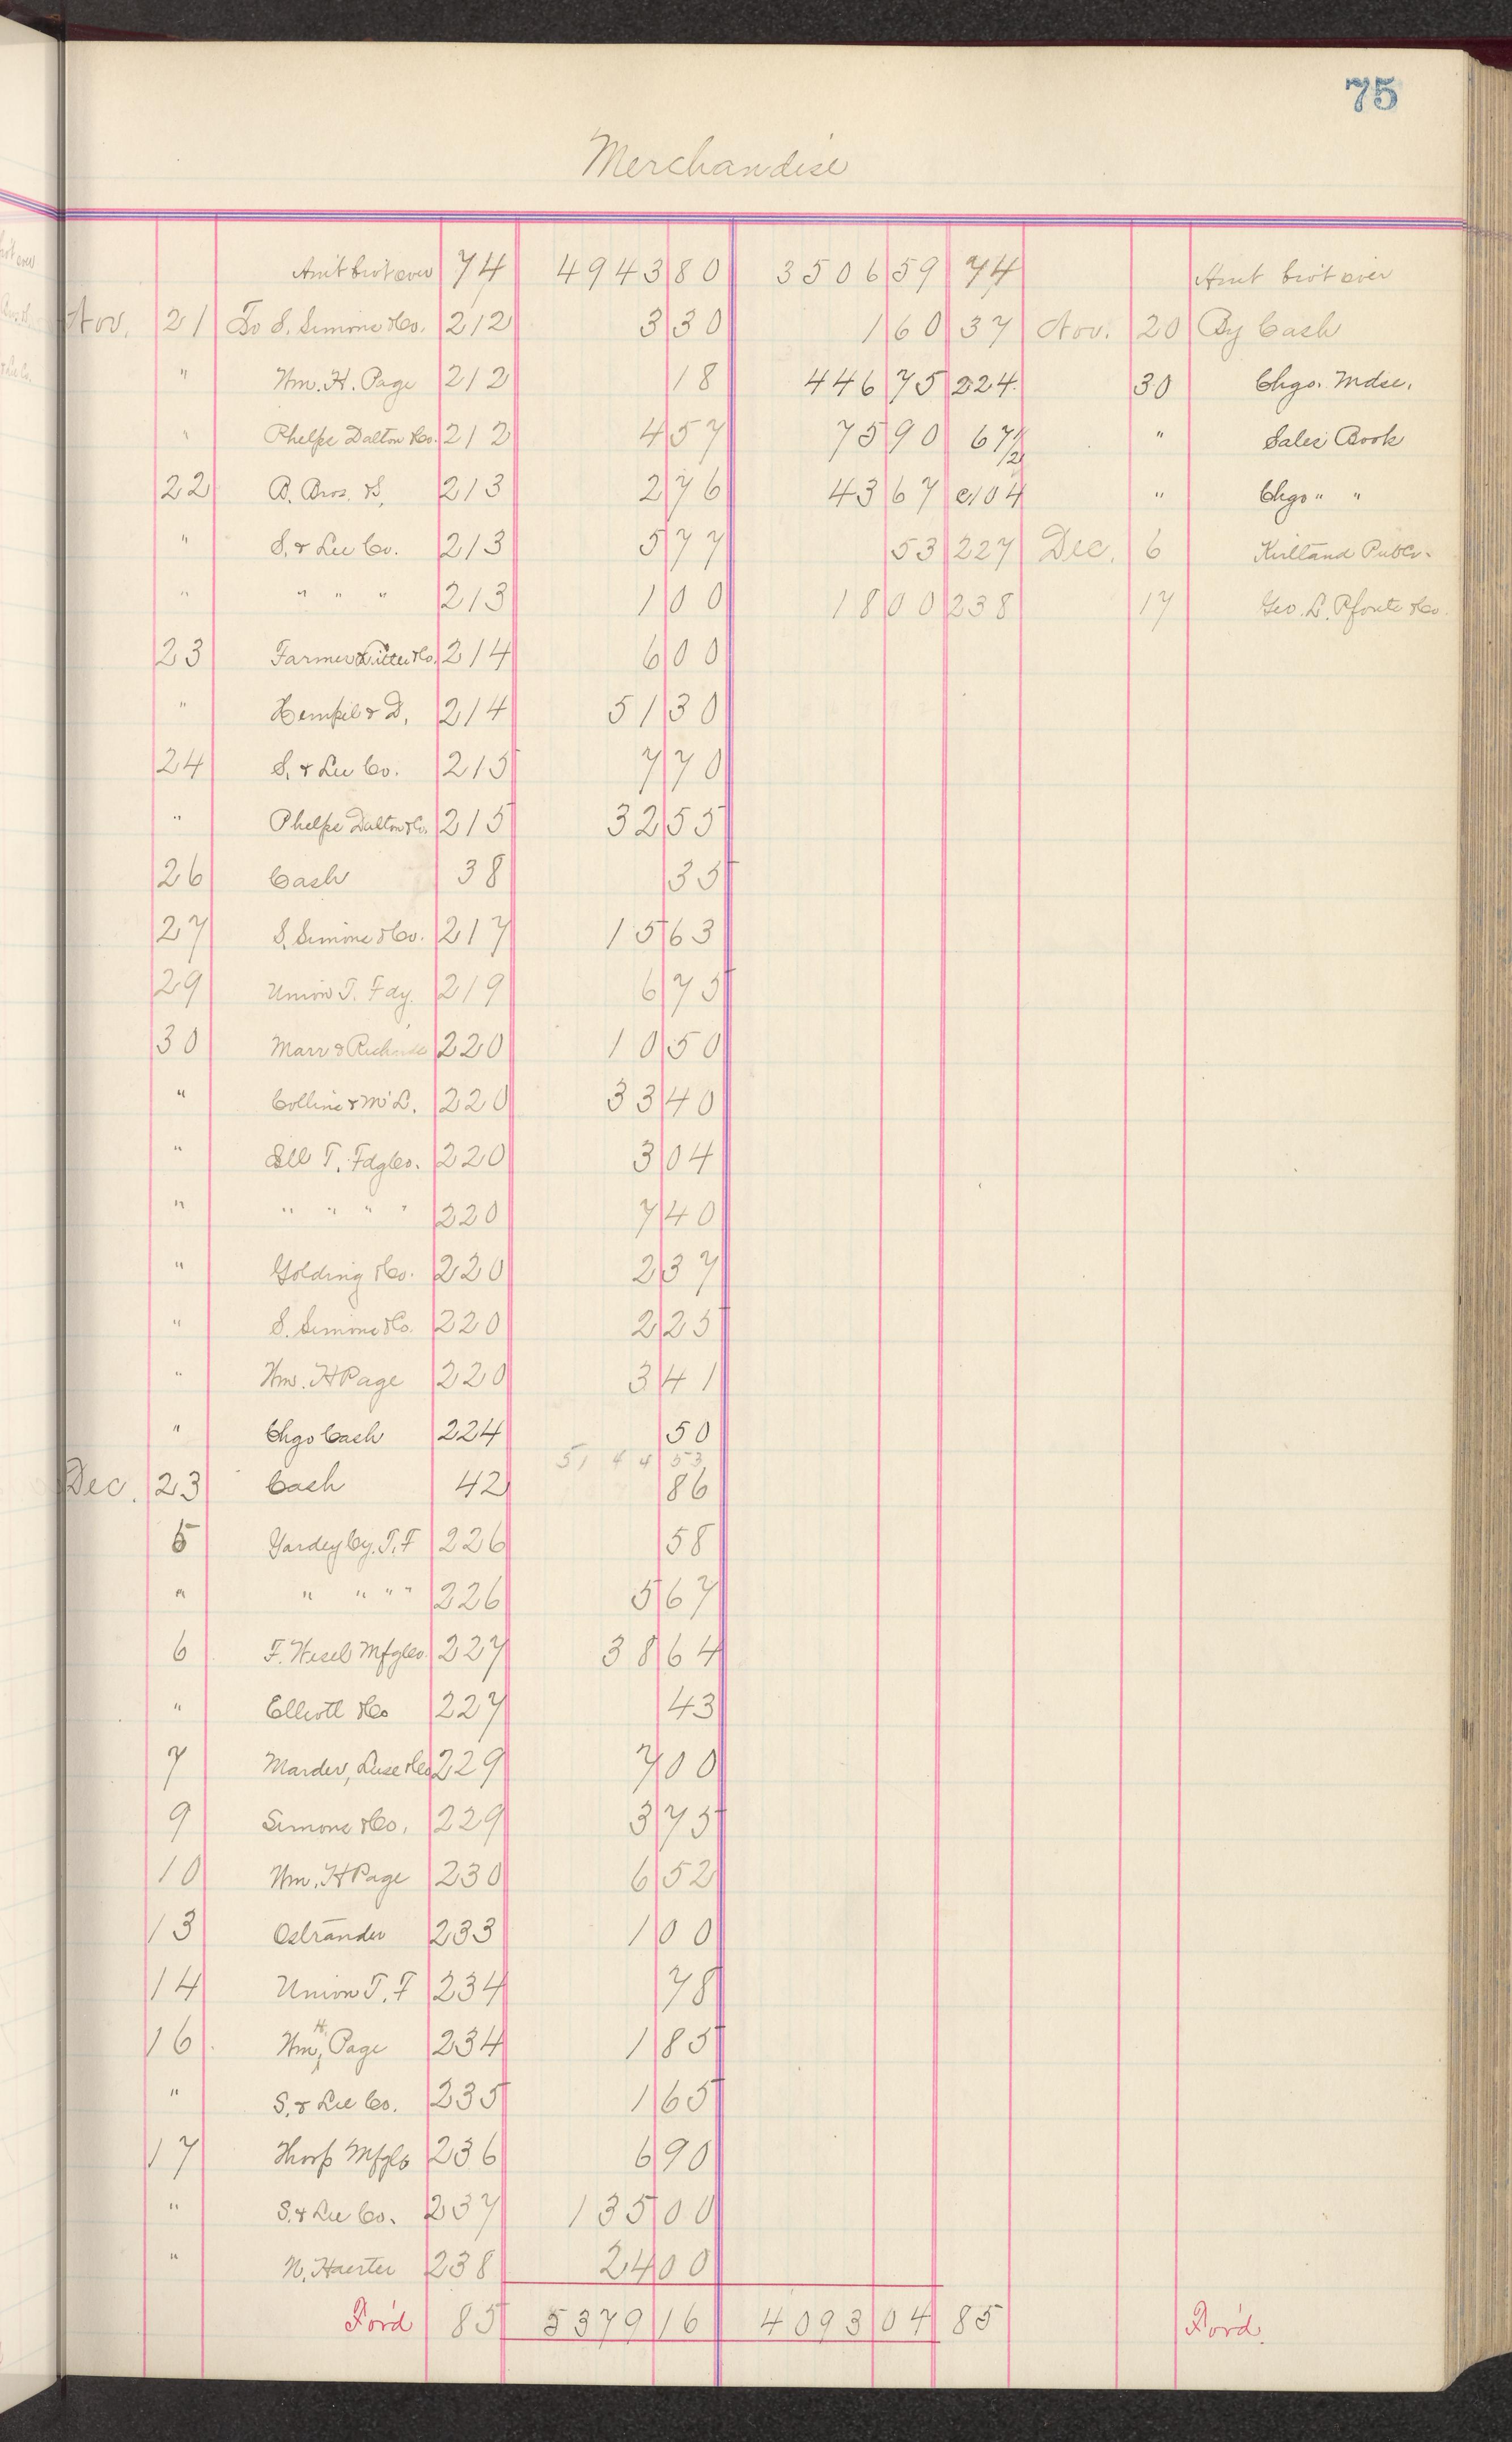 75
Merchandise
Am't bro't over 74 4943 80 3506 59 74 Amt bro't over
Nov. 21 To S. Simons & Co. 212 3 30 1 60 37 Nov. 20 By Cash
" Wm. H. Page 212 18 446 75 224 30 Chgo. Mdse.
" Phelps Dalton & Co. 212 4 57 75 90 67 1/2 " Sales Book
22 B. Bros. & S. 213 2 76 43 67 C104 " Chgo " "
" S. & Lee Co. 213 5 77 53 227 Dec. 6 Kirtland Publr.
" " " " 213 1 00 18 00 238 17 Geo. L. & Co.
23 Farmer & Co. 214 6 00
" Hempil & D. 214 51 30
24 S. & Lee Co. 215 7 70
" Phelps Dalton & Co. 215 32 55
26 Cash 38 35
27 S. Simons & Co. 217 15 63
29 Union T. Fdy. 219 6 75
30 Marr & Richards 220 10 50
" Collins & McL. 220 33 40
" Ill T. Fdg Co. 220 3 04
" " " " " 220 7 40
" Golding & Co. 220 2 37
" S. Simons & Co. 220 2 25
" Wm. H Page 220 3 41
" Chgo Cash 224 50
51 4 4 53
Dec. 23 Cash 42 86
5 Cy. T. F 226 58
" " " " " 226 5 67
6 F. Wesel Mfg Co. 227 38 64
" Elliott & Co 227 43
7 Marder, Luse & Co 229 7 00
9 Simons & Co. 229 3 75
10 Wm. H Page 230 6 52
13 Ostrander 233 1 00
14 Union T. F 234 78
16 Wm. H Page 234 1 85
" S. & Lee Co. 235 1 65
17 Thorp Mfg Co 236 6 90
" S. & Lee Co. 237 135 00
" N. Haerter 238 24 00
For'd 85 5379 16 4093 04 85 For'd.